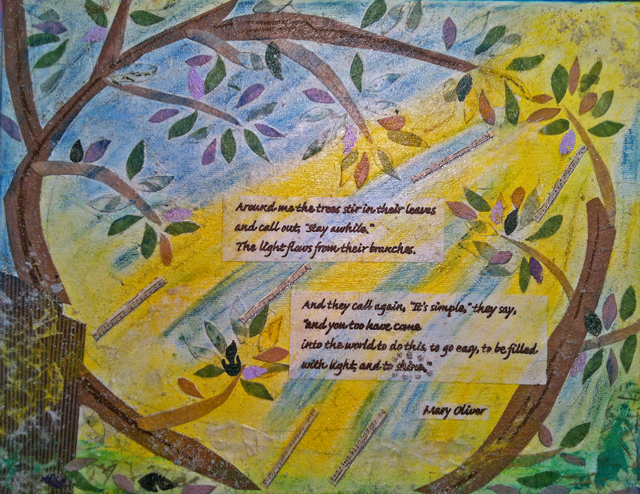 Around me the trees stir in their leaves
and call out, "stay awhile."
The light flows from their branches.
And they call again, "It's simple," they say,
"and you too have come
into the world to do this, to go easy, to be filled
with light, and to shine."
Mary Oliver